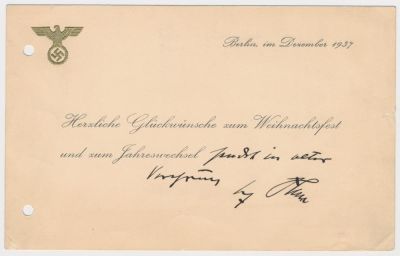 Berlin, im Dezember 1937
Herzliche Glückwünsche zum Weihnachtsfest
und zum Jahreswechsel sendet in alter